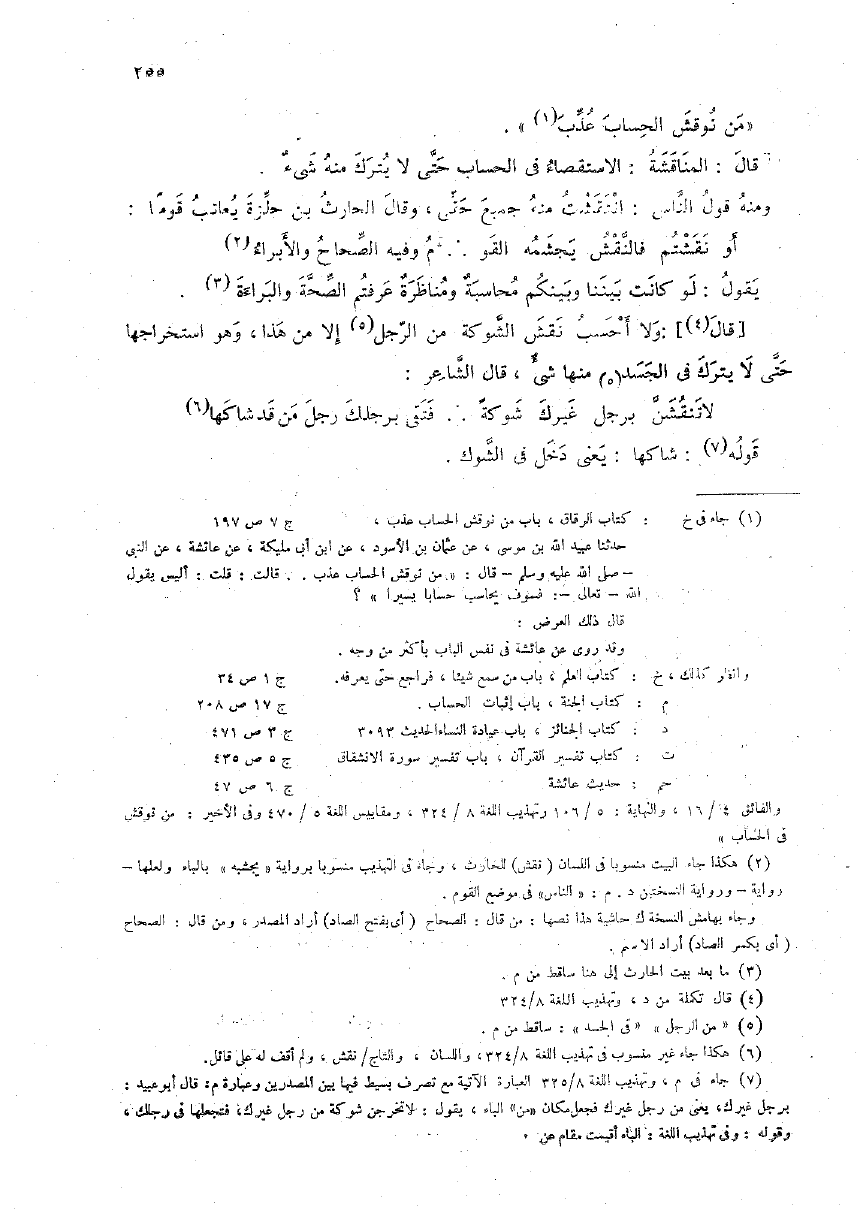 ٢٥٥
«مَن نُوقشَ الحِسابَ عُذِّبَ(١)» .
قالَ : المنَاقَشَةُ : الاستقصاءُ فى الحساب حَتَّى لا يُترَكَ منهُ شَىءٌ .
ومنهُ قولُ النَّاسِ : انْتَقَشْتُ منهُ جميعَ حَقِّى ، وقالَ الحارثُ بن حلِّزةَ يُعاتبُ قَومًا :
أَو نَقَشْتُم فالنَّقْشُ يَجشَمُه القَو .˙. مُ وفيه الصِّحاحُ والأَبراءُ(٢)
يَقولُ : لَو كانَت بَينَنا وبَينكُم مُحاسبَةٌ ومُناظَرَةٌ عَرفتُم الصِّحَّةَ والبَراءَةَ(٣) .
[قالَ(٤)] : وَلا أَحْسَبُ نَقشَ الشَّوكة من الرِّجل(٥) إلا من هَذا ، وَهو استخراجها
حَتَّى لَا يترَكَ فى الجَسَد(٥) منها شىءٌ ، قال الشَّاعر :
لاتَنقُشَنَّ برجل غَيركَ شَوكةً .˙. فَتَقى برجلكَ رجلَ مَن قَد شاكَها(٦)
قَولُه(٧) : شاكها : يَعنى دَخَل فى الشَّوك .
(١) جاء فى خ : كتاب الرقاق ، باب من نوقش الحساب عذب ، ج ٧ ص ١٩٧
حدثنا عبيد الله بن موسى ، عن عثمان بن الأسود ، عن ابن أبى مليكة ، عن عائشة ، عن النبى
– صلى الله عليه وسلم – قال : «من نوقش الحساب عذب . . قالت : قلت : أليس يقول
الله – تعالى –: فسوف يحاسب حسابا يسيرا » ؟
قال ذلك العرض :
وقد روى عن عائشة فى نفس الباب بأكثر من وجه .
وانظر كذلك ، خ : كتاب العلم ، باب من سمع شيئا ، فراجع حتى يعرفه. ج ١ ص ٣٤
م : كتاب الجنة ، باب إثبات الحساب . ج ١٧ ص ٢٠٨
د : كتاب الجنائز ، باب عيادة النساءالحديث ٣٠٩٣ ج ٣ ص ٤٧١
ت : كتاب تفسير القرآن ، باب تفسير سورة الانشقاق ج ٥ ص ٤٣٥
حم : حديث عائشة ج ٦ ص ٤٧
والفائق ٤/ ١٦ ، والنهاية : ٥ /١٠٦ وتهذيب اللغة ٨ / ٣٢٤ ، ومقاييس اللغة ٥ / ٤٧٠ وفى الأخير : من نوقش
فى الحساب »
(٢) هكذا جاء البيت منسوبا فى اللسان ( نقش) للحارث ، وجاء فى التهذيب منسوبا برواية « يجشبه » بالباء ولعلها –
رواية – ورواية النسختين د . م : « الناس» فى موضع القوم .
وجاء بهامش النسخة ك حاشية هذا نصها : من قال : الصحاح ( أى بفتح الصاد) أراد المصدر ، ومن قال : الصحاح
( أى بكسر الصاد) أراد الاسم .
(٣) ما بعد بيت الحارث إلى هنا ساقط من م .
(٤) قال تكملة من د ، وتهذيب اللغة ٣٢٤/٨
(٥) « من الرجل » « فى الجسد » : ساقط من م .
(٦) هكذا جاء غير منسوب فى تهذيب اللغة ٣٢٤/٨، واللسان ، والتاج/ نقش ، ولم أقف له على قائل.
(٧) جاء فى م ، وتهذيب اللغة ٣٢٥/٨ العبارة الآتية مع تصرف بسيط فيها بين المصدرين وعبارة م: قال أبوعبيد :
برجل غيرك، يعنى من رجل غيرك فجعل مكان «من» الباء ، يقول : لاتخرجن شوكة من رجل غيرك، فتجعلها فى رجلك ،
وقوله : وفى تهذيب اللغة : الباء أقيمت مقام عن .